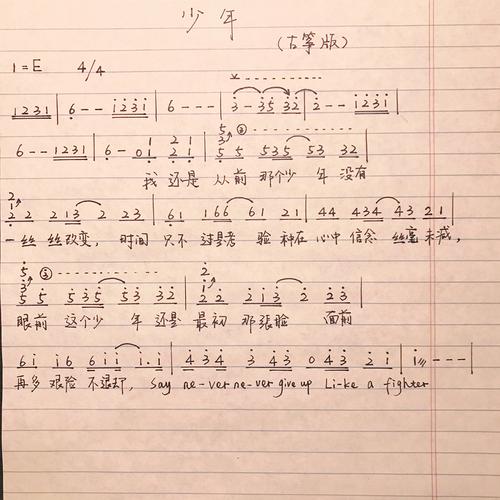 少年
(古筝版)
1=E 4/4
1231 | 6 - - i231 | 6 - - - | 3 - 35 32 | 2 - - i231 |
6 - - 1231 | 6 - 01 21 | 55 535 53 32 |
我 还是 从前 那个少 年 没有
22 213 2 23 | 61 166 61 21 | 44 434 43 21 |
一丝 丝改变, 时间 只不 过是考 验 种在 心中 信念 丝毫 未减,
55 535 53 32 | 22 213 2 23 |
眼前 这个少 年 还是 最初 那張脸 面前
6i i6 6ii i.i | 434 3 43 043 2i | i - - - |
再多 艰险 不退却, Say ne-ver ne-ver give up Li-ke a fighter